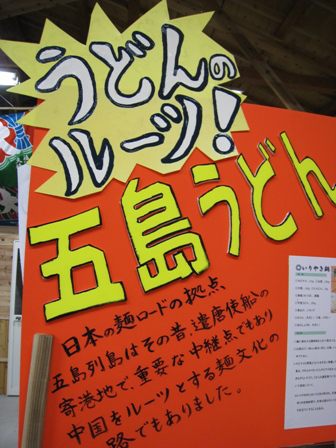 うどんの
ルーツ!
五島うどん
日本の麺ロードの拠点
五島列島はその昔、遣唐使船への
寄港地で、重要な中継点でもあり
中国をルーツとする麺文化の
路でもありました。
◎いりやき鍋